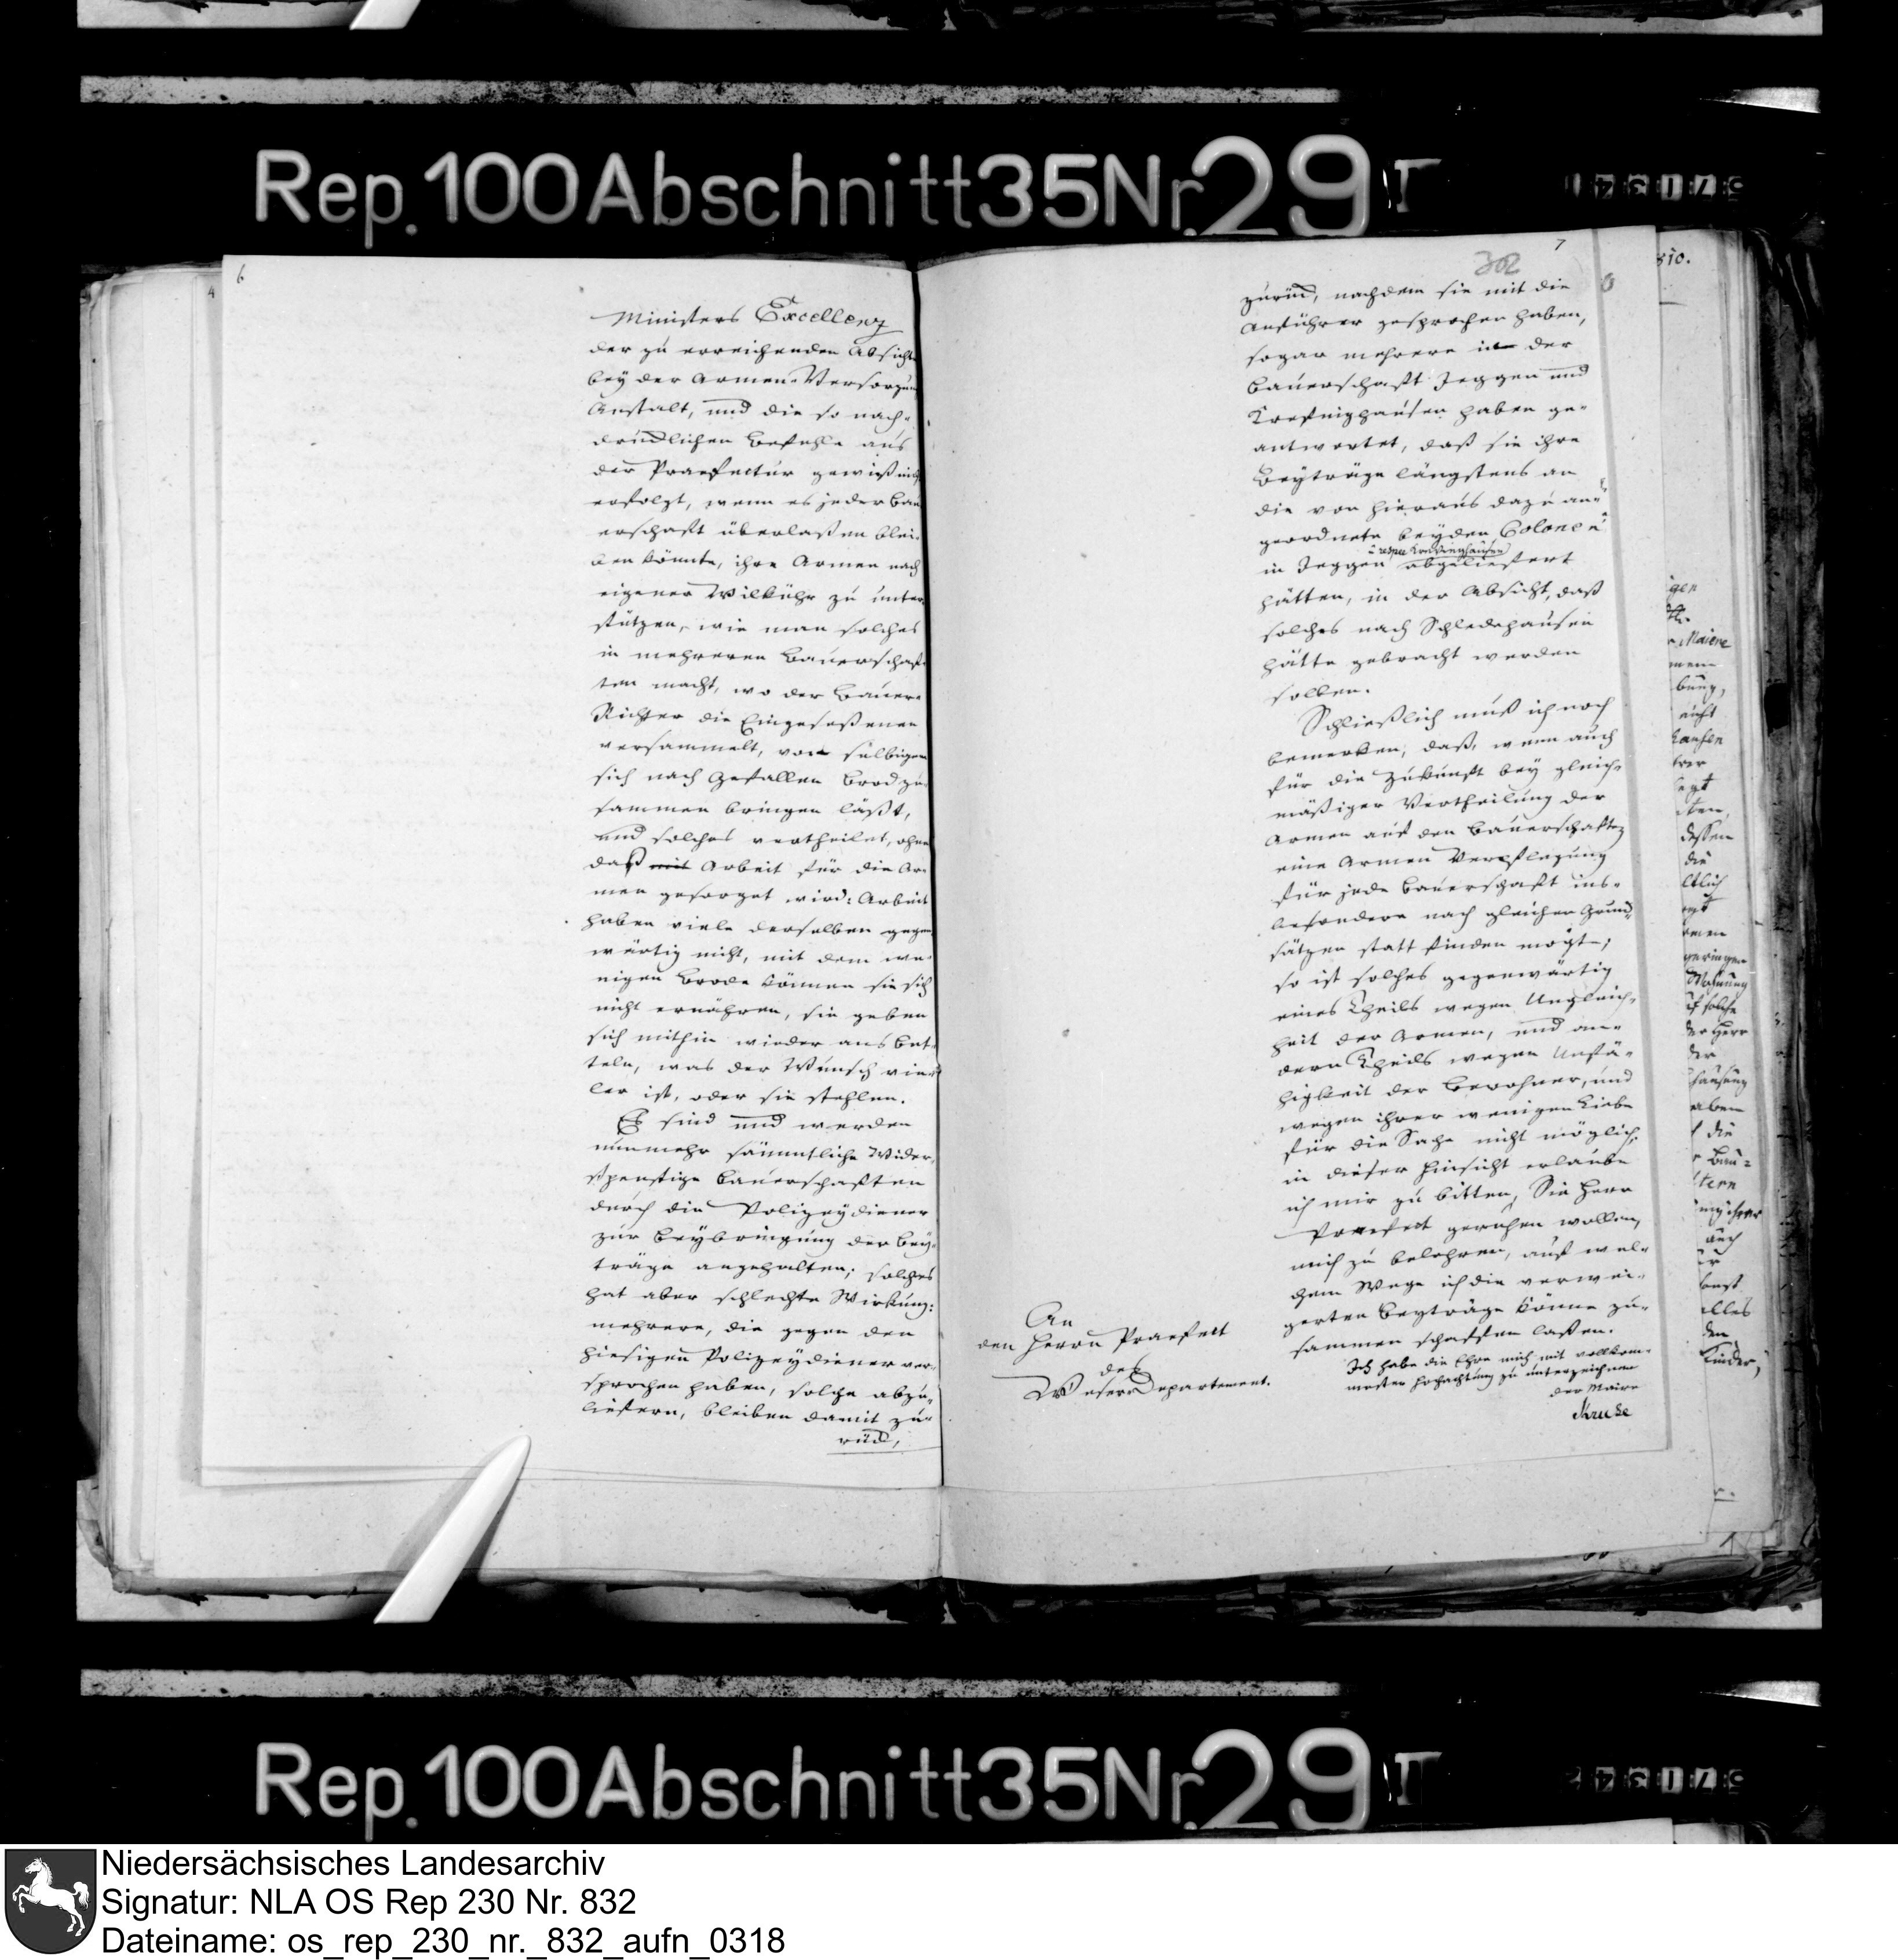 Rep. 100 Abschnitt 35 Nr. 29 I
6
Ministers Excellenz
der zu erreichenden Absicht
bey der Armen-Versorgungs
Anstalt, und die so nach-
drücklichen Befehle aus
der Praefectur gewiß nicht
erfolgt, wenn es jeder Bau
erschaft überlaßen blei-
ben könnte, ihre Armen nach
eigener Wilkühr zu unter-
stützen, wie man solches
in mehreren Bauerschaf-
ten macht, wo der Bauer-
Richter die Eingeseßenen
versammelt, von selbigen
sich nach Gefallen Brod zu-
sammen bringen läßt,
und solches vertheilet, ohne
daß mit Arbeit für die Ar-
men gesorget wird: Arbeit
haben viele derselben gegen
wärtig nicht, mit dem we-
nigen Brode können sie sich
nicht ernähren, sie geben
sich mithin wieder ans Bet-
teln, was der Wunsch vie-
ler ist, oder sie stehlen.
Es sind und werden
nunmehr sämmtliche Wider-
spenstige Bauerschaften
durch die Polizeydiener
zur Beybringung der Bey-
träge angehalten; solches
hat aber schlechte Wirkung:
mehrere, die gegen den
hiesigen Polizeydiener ver-
sprochen haben, solche abzu-
liefern, bleiben damit zu-
rück,
7
302
zurück, nachdem sie mit die
Anführer gesprochen haben,
sogar mehrere in der
Bauerschaft Jeggen und
haben ge-
antwortet, daß sie ihre
Beyträge längstens an
die von hieraus dazu an-
geordnete beyden Colone
in Jeggen u respec abgeliefert
hätten, in der Absicht, daß
solches nach Schledehausen
hätte gebracht werden
sollen.
Schließlich muß ich noch
bemerken, daß, wenn auch
für die Zukunft bey gleich-
mäßiger Vertheilung der
Armen auf den Bauerschaften
eine Armen Verpflegung
für jede Bauerschaft ins-
besondere nach gleichen Grund-
sätzen statt finden mögte;
so ist solches gegenwärtig
eines Theils wegen Ungleich-
heit der Armen, und an-
dern Theils wegen Unfä-
higkeit der Bewohner, und
wegen ihrer wenigen Liebe
für die Sache nicht möglich,
in dieser Hinsicht erlaube
ich mir zu bitten, Sie Herr
Praefect geruhen wollen,
mich zu belehren, auf wel-
chem Wege ich die verwei-
gerten Beyträge könne zu-
sammen schaffen laßen.
Ich habe die Ehre mich mit vollkom-
menster Hochachtung zu unterzeichnen
der Maire
Kruse
An
den Herrn Praefect
des
Weser-Departement.
Rep. 100 Abschnitt 35 Nr. 29 I
Niedersächsisches Landesarchiv
Signatur: NLA OS Rep 230 Nr. 832
Dateiname: os_rep_230_nr._832_aufn_0318